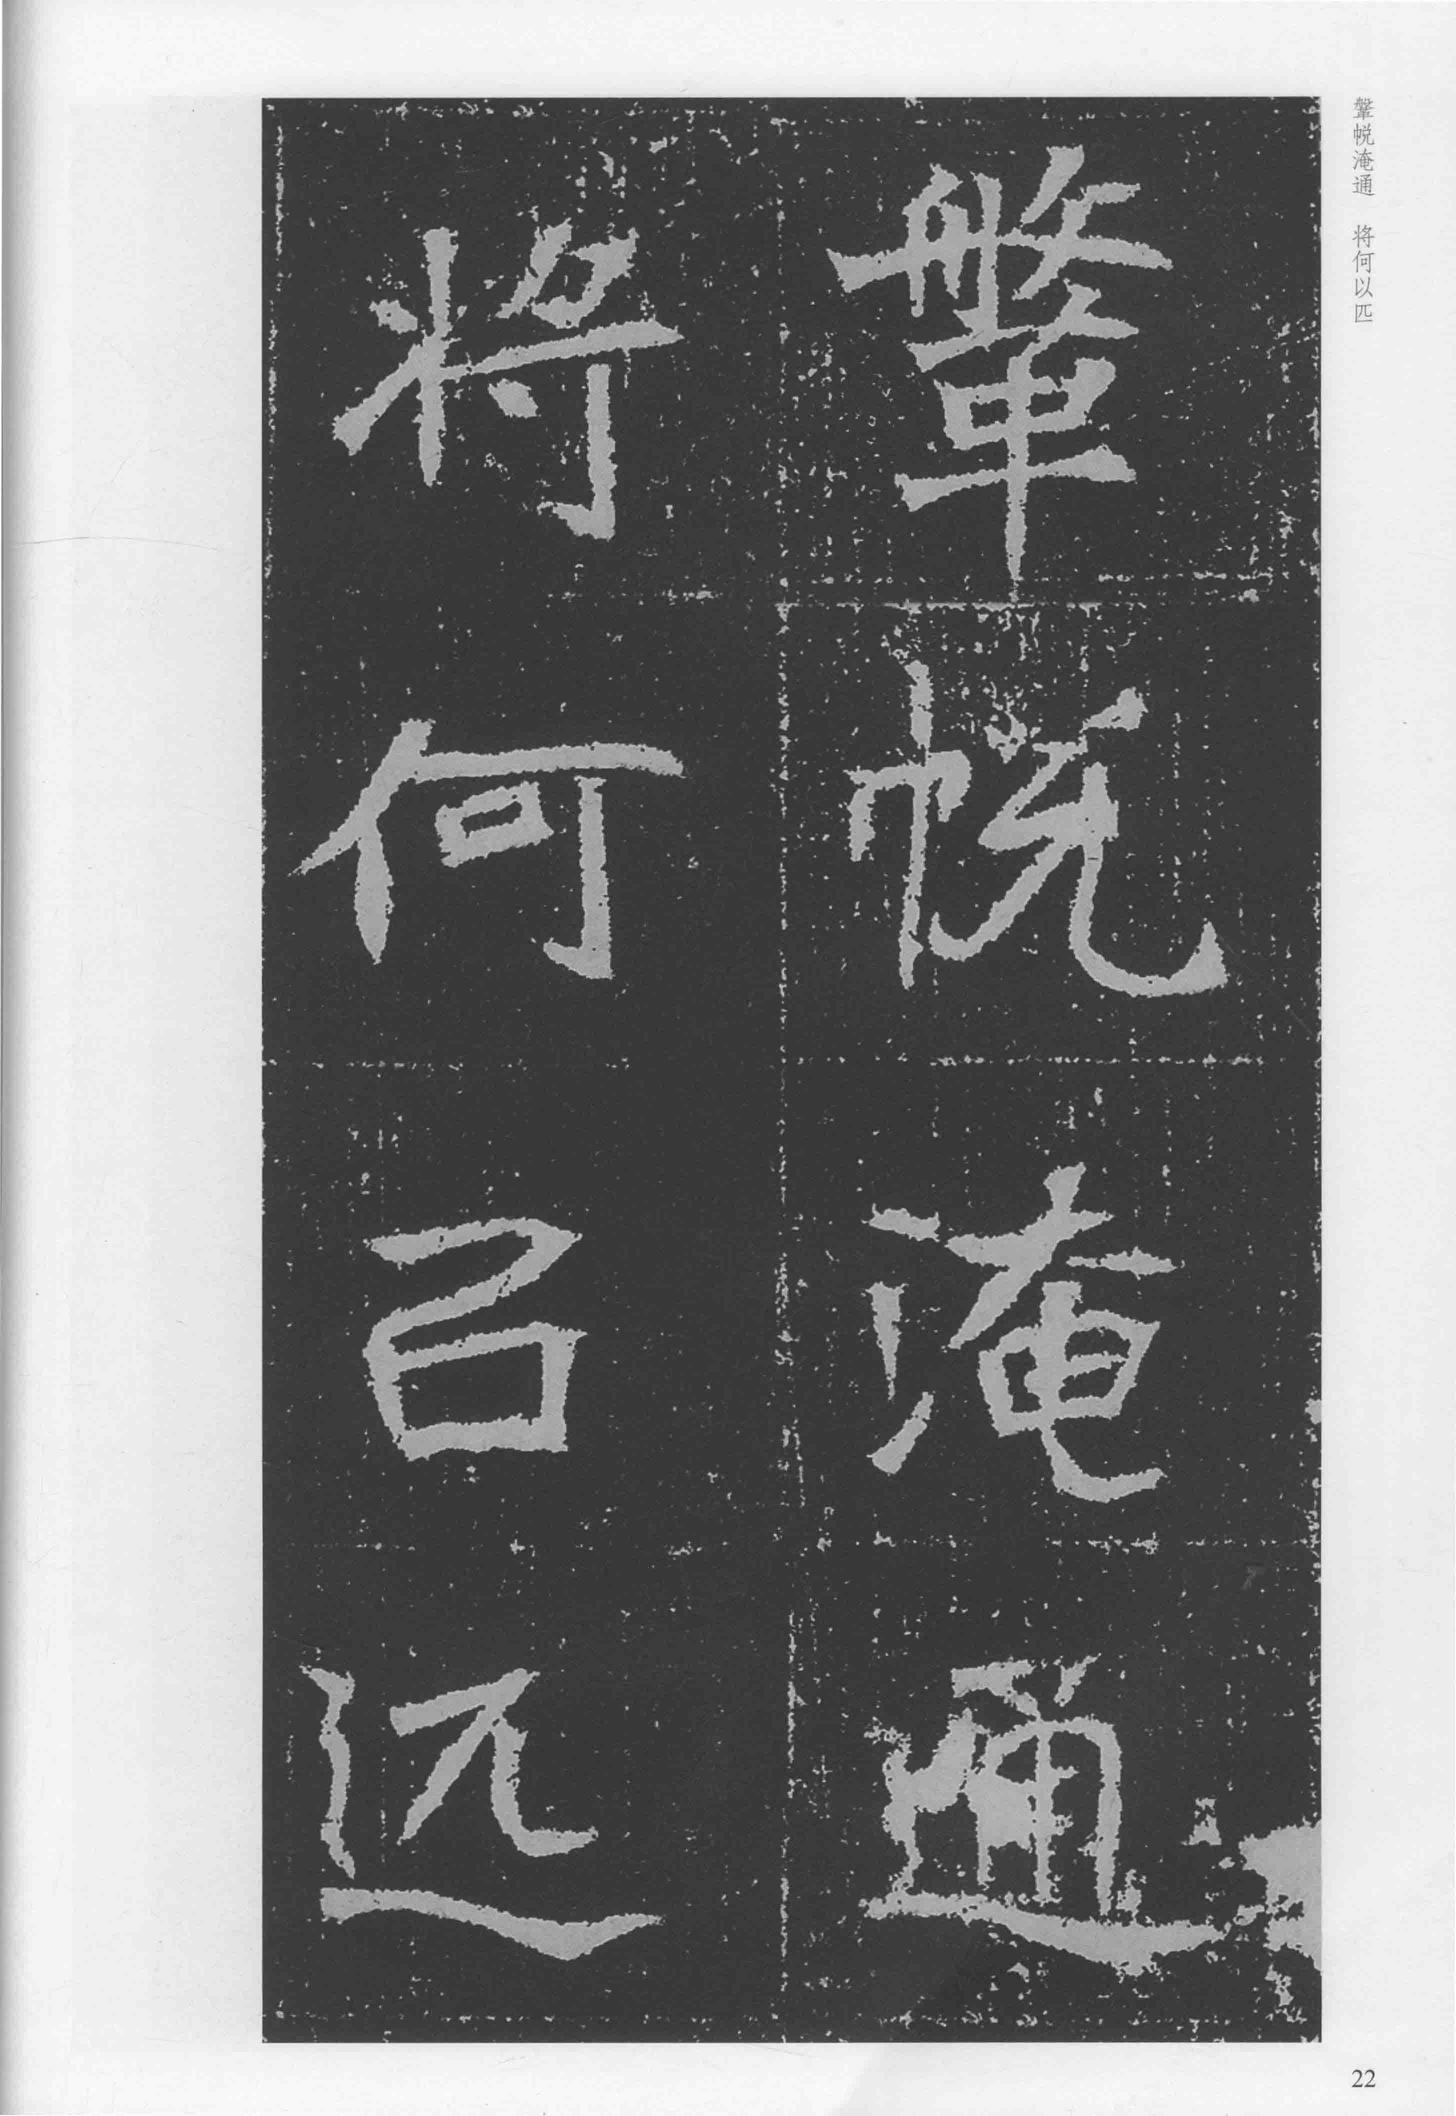 鞶帨淹通 将何以匹
鞶帨淹通
将何以匹
22